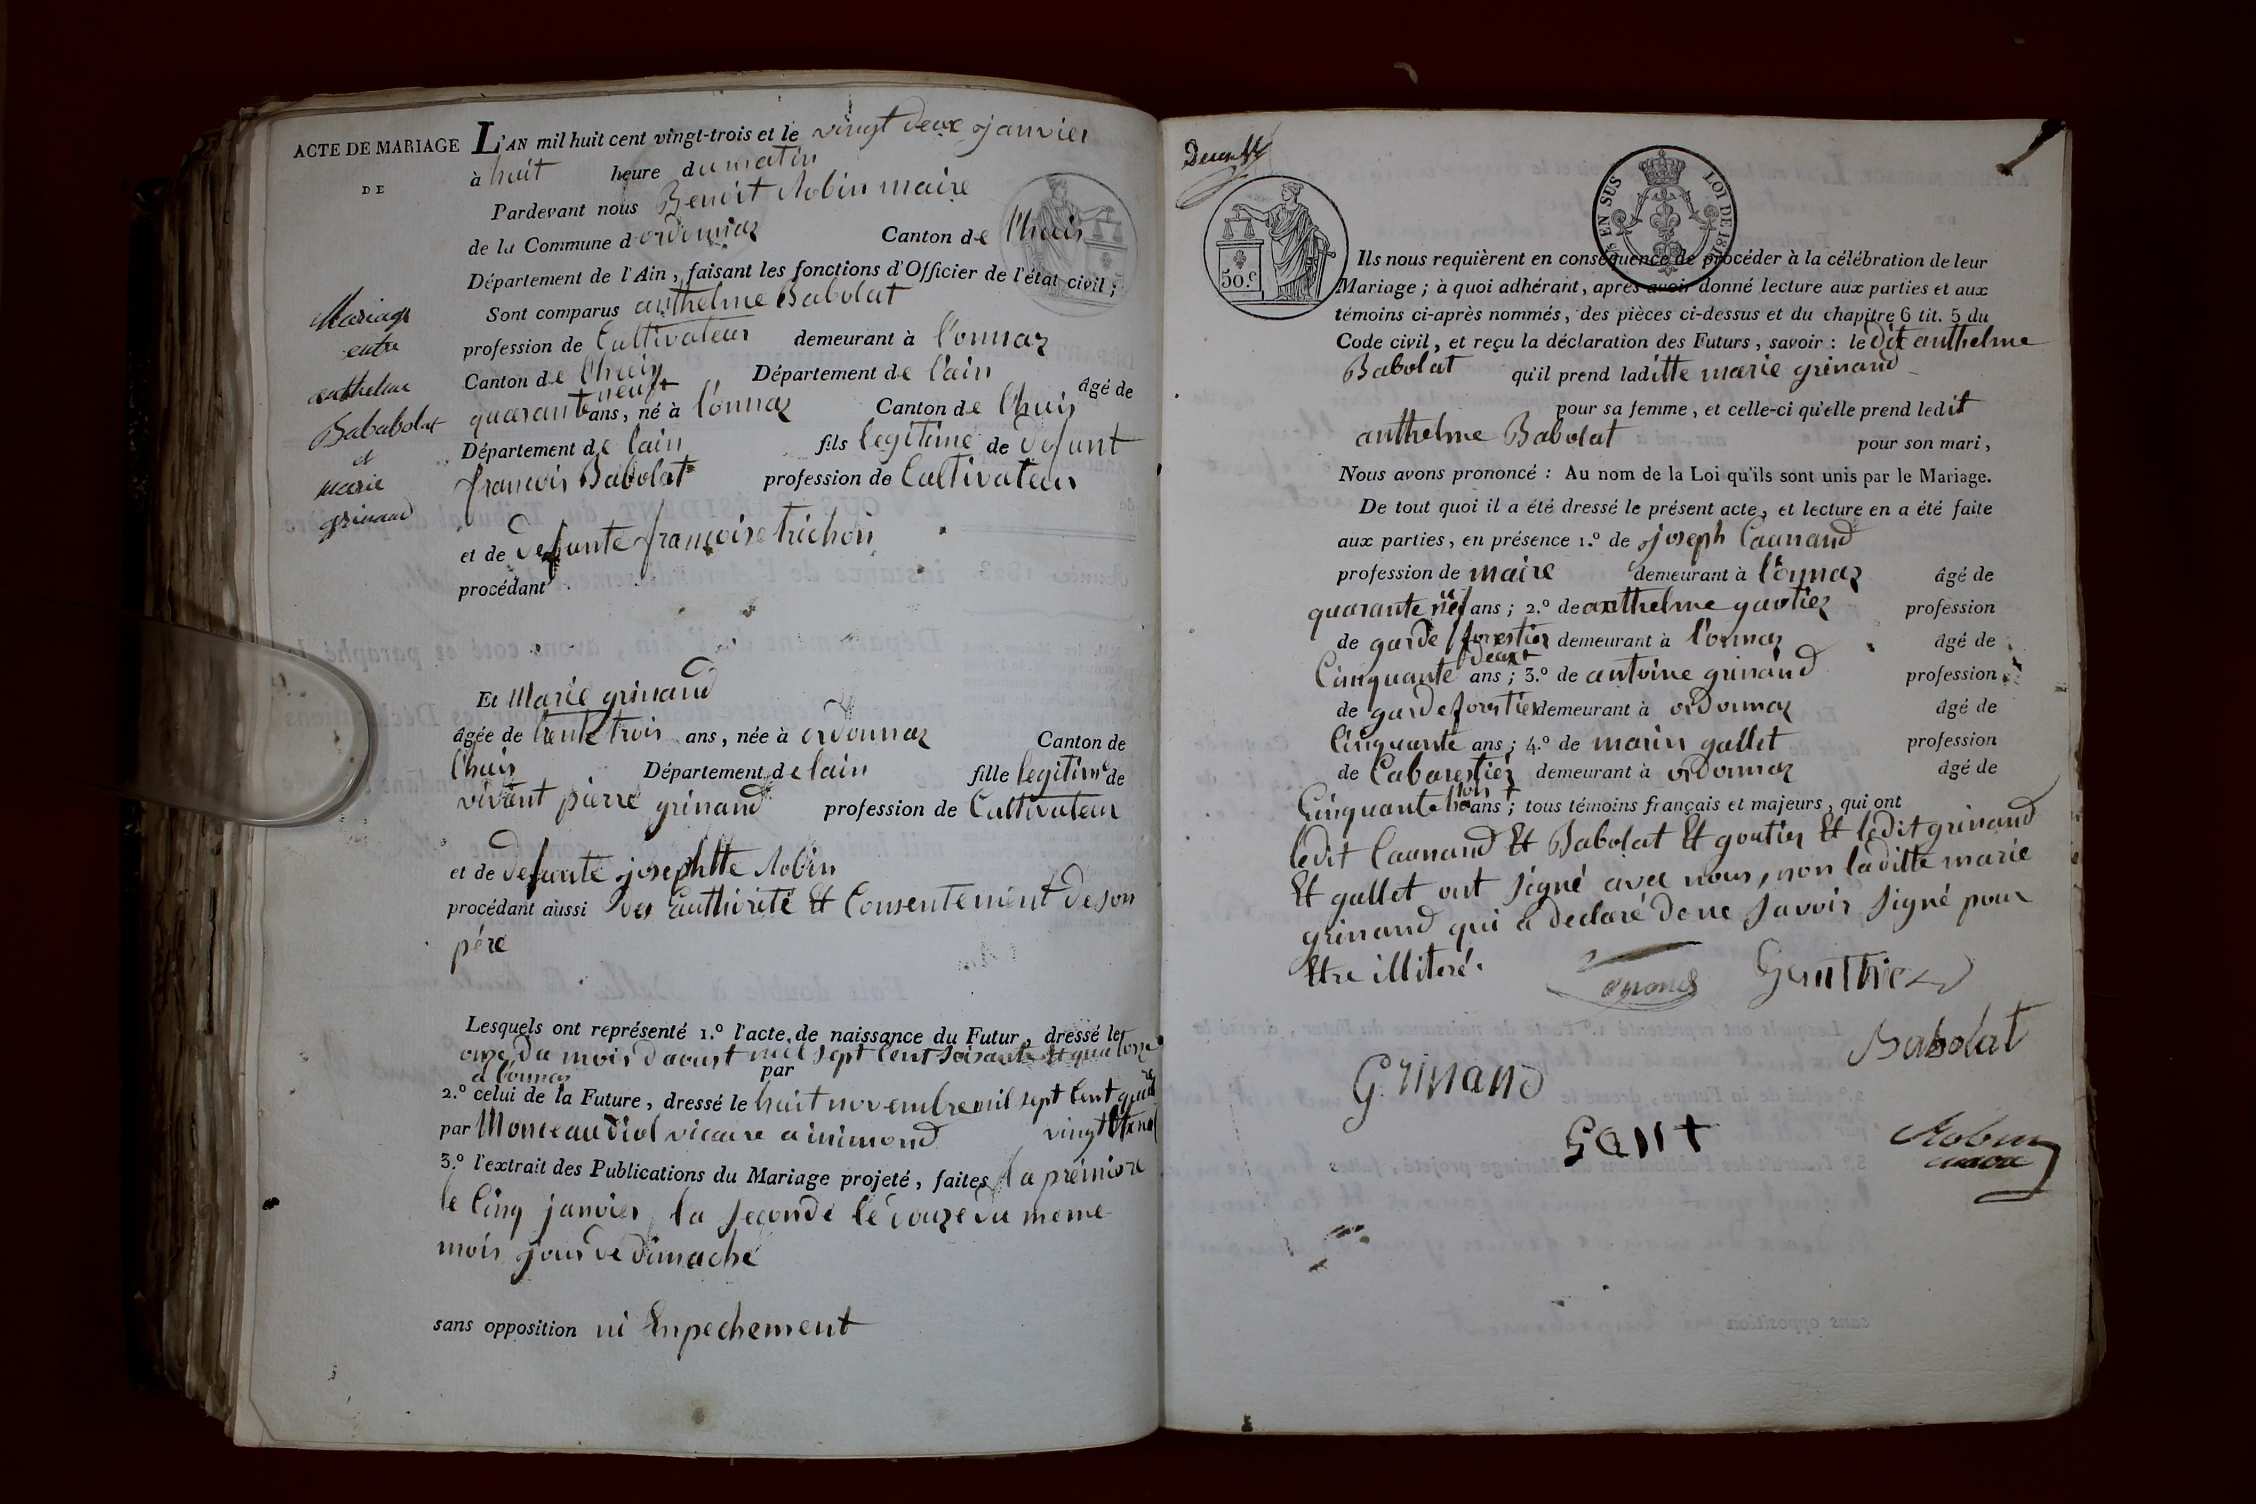 ACTE DE MARIAGE
DE
Mariage
entre
anthelme
Bababolat
et
marie
grinand
L'AN mil huit cent vingt-trois et le vingt deux janvier
à huit heure du matin
Pardevant nous Benoit Robin maire
de la Commune d ordonnaz Canton de l'huis
Département de l'Ain, faisant les fonctions d'Officier de l'état civil;
Sont comparus anthelme Babolat
profession de Cultivateur demeurant à l'onnaz
Canton de l'huis Département de l'ain âgé de
quarante neuf ans, né à l'onnaz Canton de l'huis
Département de lain fils legitime de defunt
francois Babolat profession de Cultivateur
et de defunte françoise trichon
procédant
Et Marie grinand
âgée de trente trois ans, née à ordonnaz Canton de
l'huis Département de lain fille legitime de
vivant pierre grinand profession de Cultivateur
et de defunte josephtte Robin
procédant aussi des authorité Et Consentement de son
pére
Lesquels ont représenté 1.º l'acte de naissance du Futur, dressé le
onze du mois daoust mil sept Cent soixante et quatorze
a l'onnaz par
2.º celui de la Future, dressé le huit novembre mil sept Cent quatre
vingt neuf
par vicaire a inimond
3.º l'extrait des Publications du Mariage projeté, faites la premiere
le Cinq janvier la seconde le douze du meme
mois jour de dimache
sans opposition ni Enpechement
50.c
EN SUS LOI DE 181
Ils nous requièrent en conséquence de procéder à la célébration de leur
Mariage; à quoi adhérant, après avoir donné lecture aux parties et aux
témoins ci-après nommés, des pièces ci-dessus et du chapitre 6 tit. 5 du
Code civil, et reçu la déclaration des Futurs, savoir : le dit anthelme
Babolat qu'il prend laditte marie grinand
pour sa femme, et celle-ci qu'elle prend ledit
anthelme Babolat pour son mari,
Nous avons prononcé : Au nom de la Loi qu'ils sont unis par le Mariage.
De tout quoi il a été dressé le présent acte, et lecture en a été faite
aux parties, en présence 1.º de joseph Caunand
profession de maire demeurant à l'onnaz âgé de
quarante nef ans; 2.º de anthelme gautier profession
de garde forestier demeurant à l'onnaz âgé de
Cinquante deux ans; 3.º de antoine grinand profession
de garde forestier demeurant à ordonnaz âgé de
Cinquante ans; 4.º de marin gallet profession
de Cabarestier demeurant à ordonnaz âgé de
Cinquante ans; tous témoins français et majeurs, qui ont
ledit Caunand Et Babolat Et goutier Et ledit grinand
Et gallet ont signé avec nous, non laditte marie
grinand qui a declaré de ne savoir signé pour
Etre illiteré.
Gauthier
Babolat
Grinand
Robin
maire